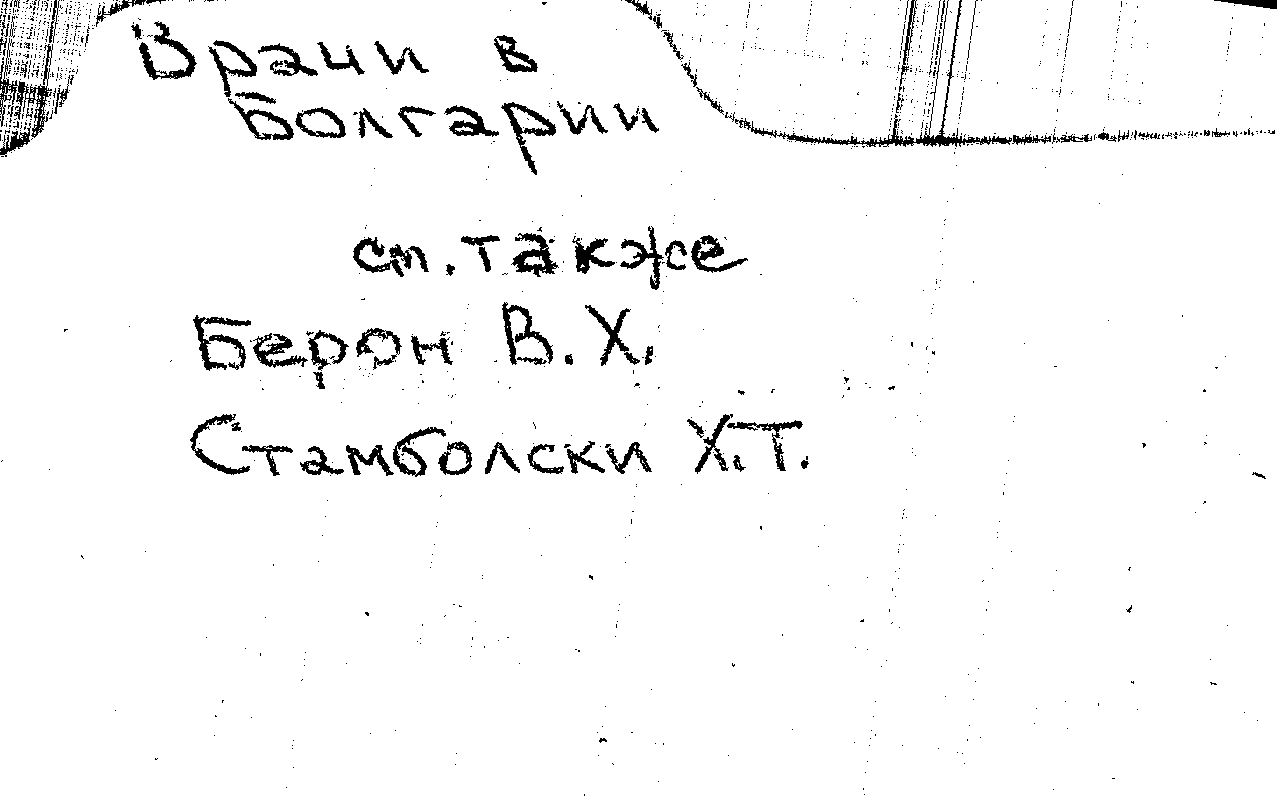 Врачи в
Болгарии
см. также
Берон В. Х.
Стамболски Х.Т.